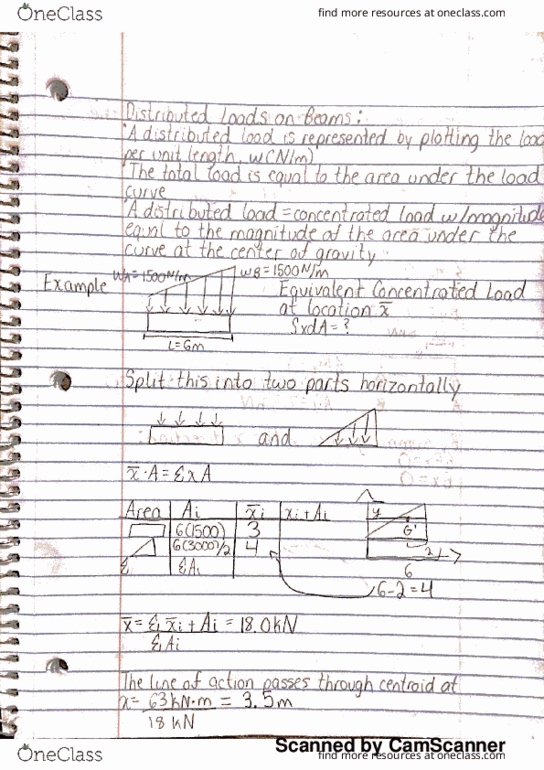 OneClass
find more resources at oneclass.com
Distributed Loads on Beams:
A distributed load is represented by plotting the load
per unit length, w(N/m)
The total load is equal to the area under the load
curve
A distributed load = concentrated load w/magnitude
equal to the magnitude of the area under the
curve at the center of gravity
Example
WA=1500N/m
WB=1500N/m
Equivalent Concentrated Load
at location x̄
SxdA=?
L=6m
Split this into two parts horizontally
and
x̄·A=ΣxA
Area Ai x̄i xi+Ai
6(1500) 3
6(3000)/2 4
Σ ΣAi
y
6
6-2=4
x̄=Σx̄i+Ai = 18.0kN
ΣAi
The line of action passes through centroid at
x= 63kN·m = 3.5m
18 kN
Scanned by CamScanner
OneClass
find more resources at oneclass.com